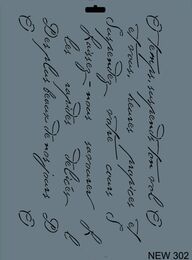 O temps suspends ton vol O
et vous heures propices et
Suspendez votre cours S
Laissez-nous savourer L
les rapides délices L
Des plus beaux de nos jours D
NEW 302